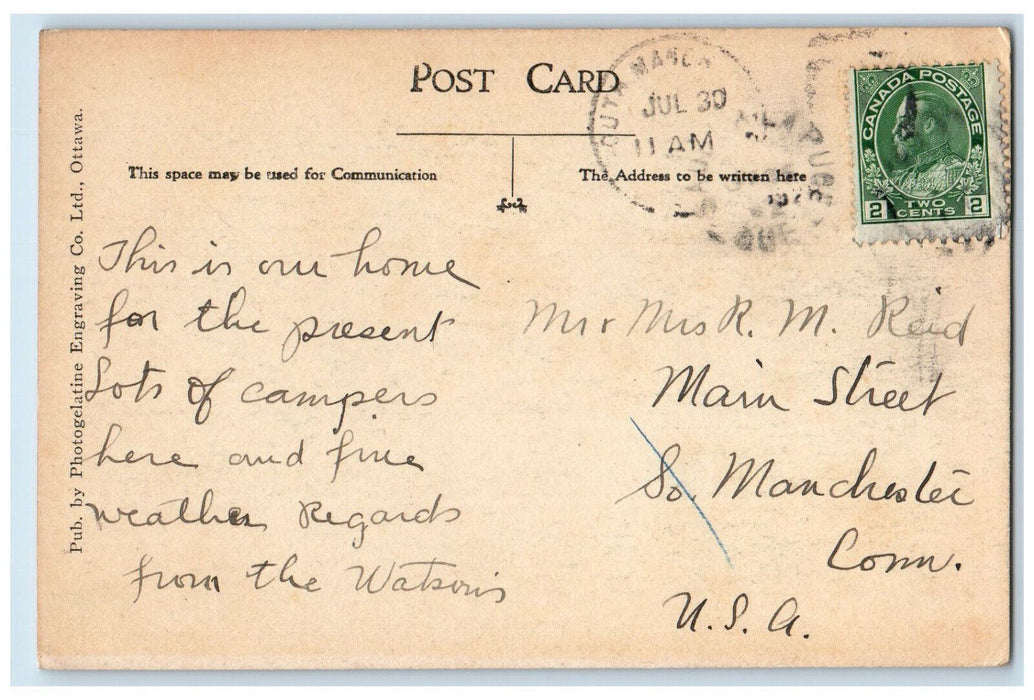 POST CARD
This space may be used for Communication
The Address to be written here
Pub. by Photogelatine Engraving Co. Ltd., Ottawa.
JUL 30
11 AM
CANADA POSTAGE
2 TWO CENTS 2
This is our home
for the present
Lots of campers
here and fine
weather Regards
from the Watsons
Mr & Mrs R. M. Reid
Main Street
So. Manchester
Conn.
U.S.A.